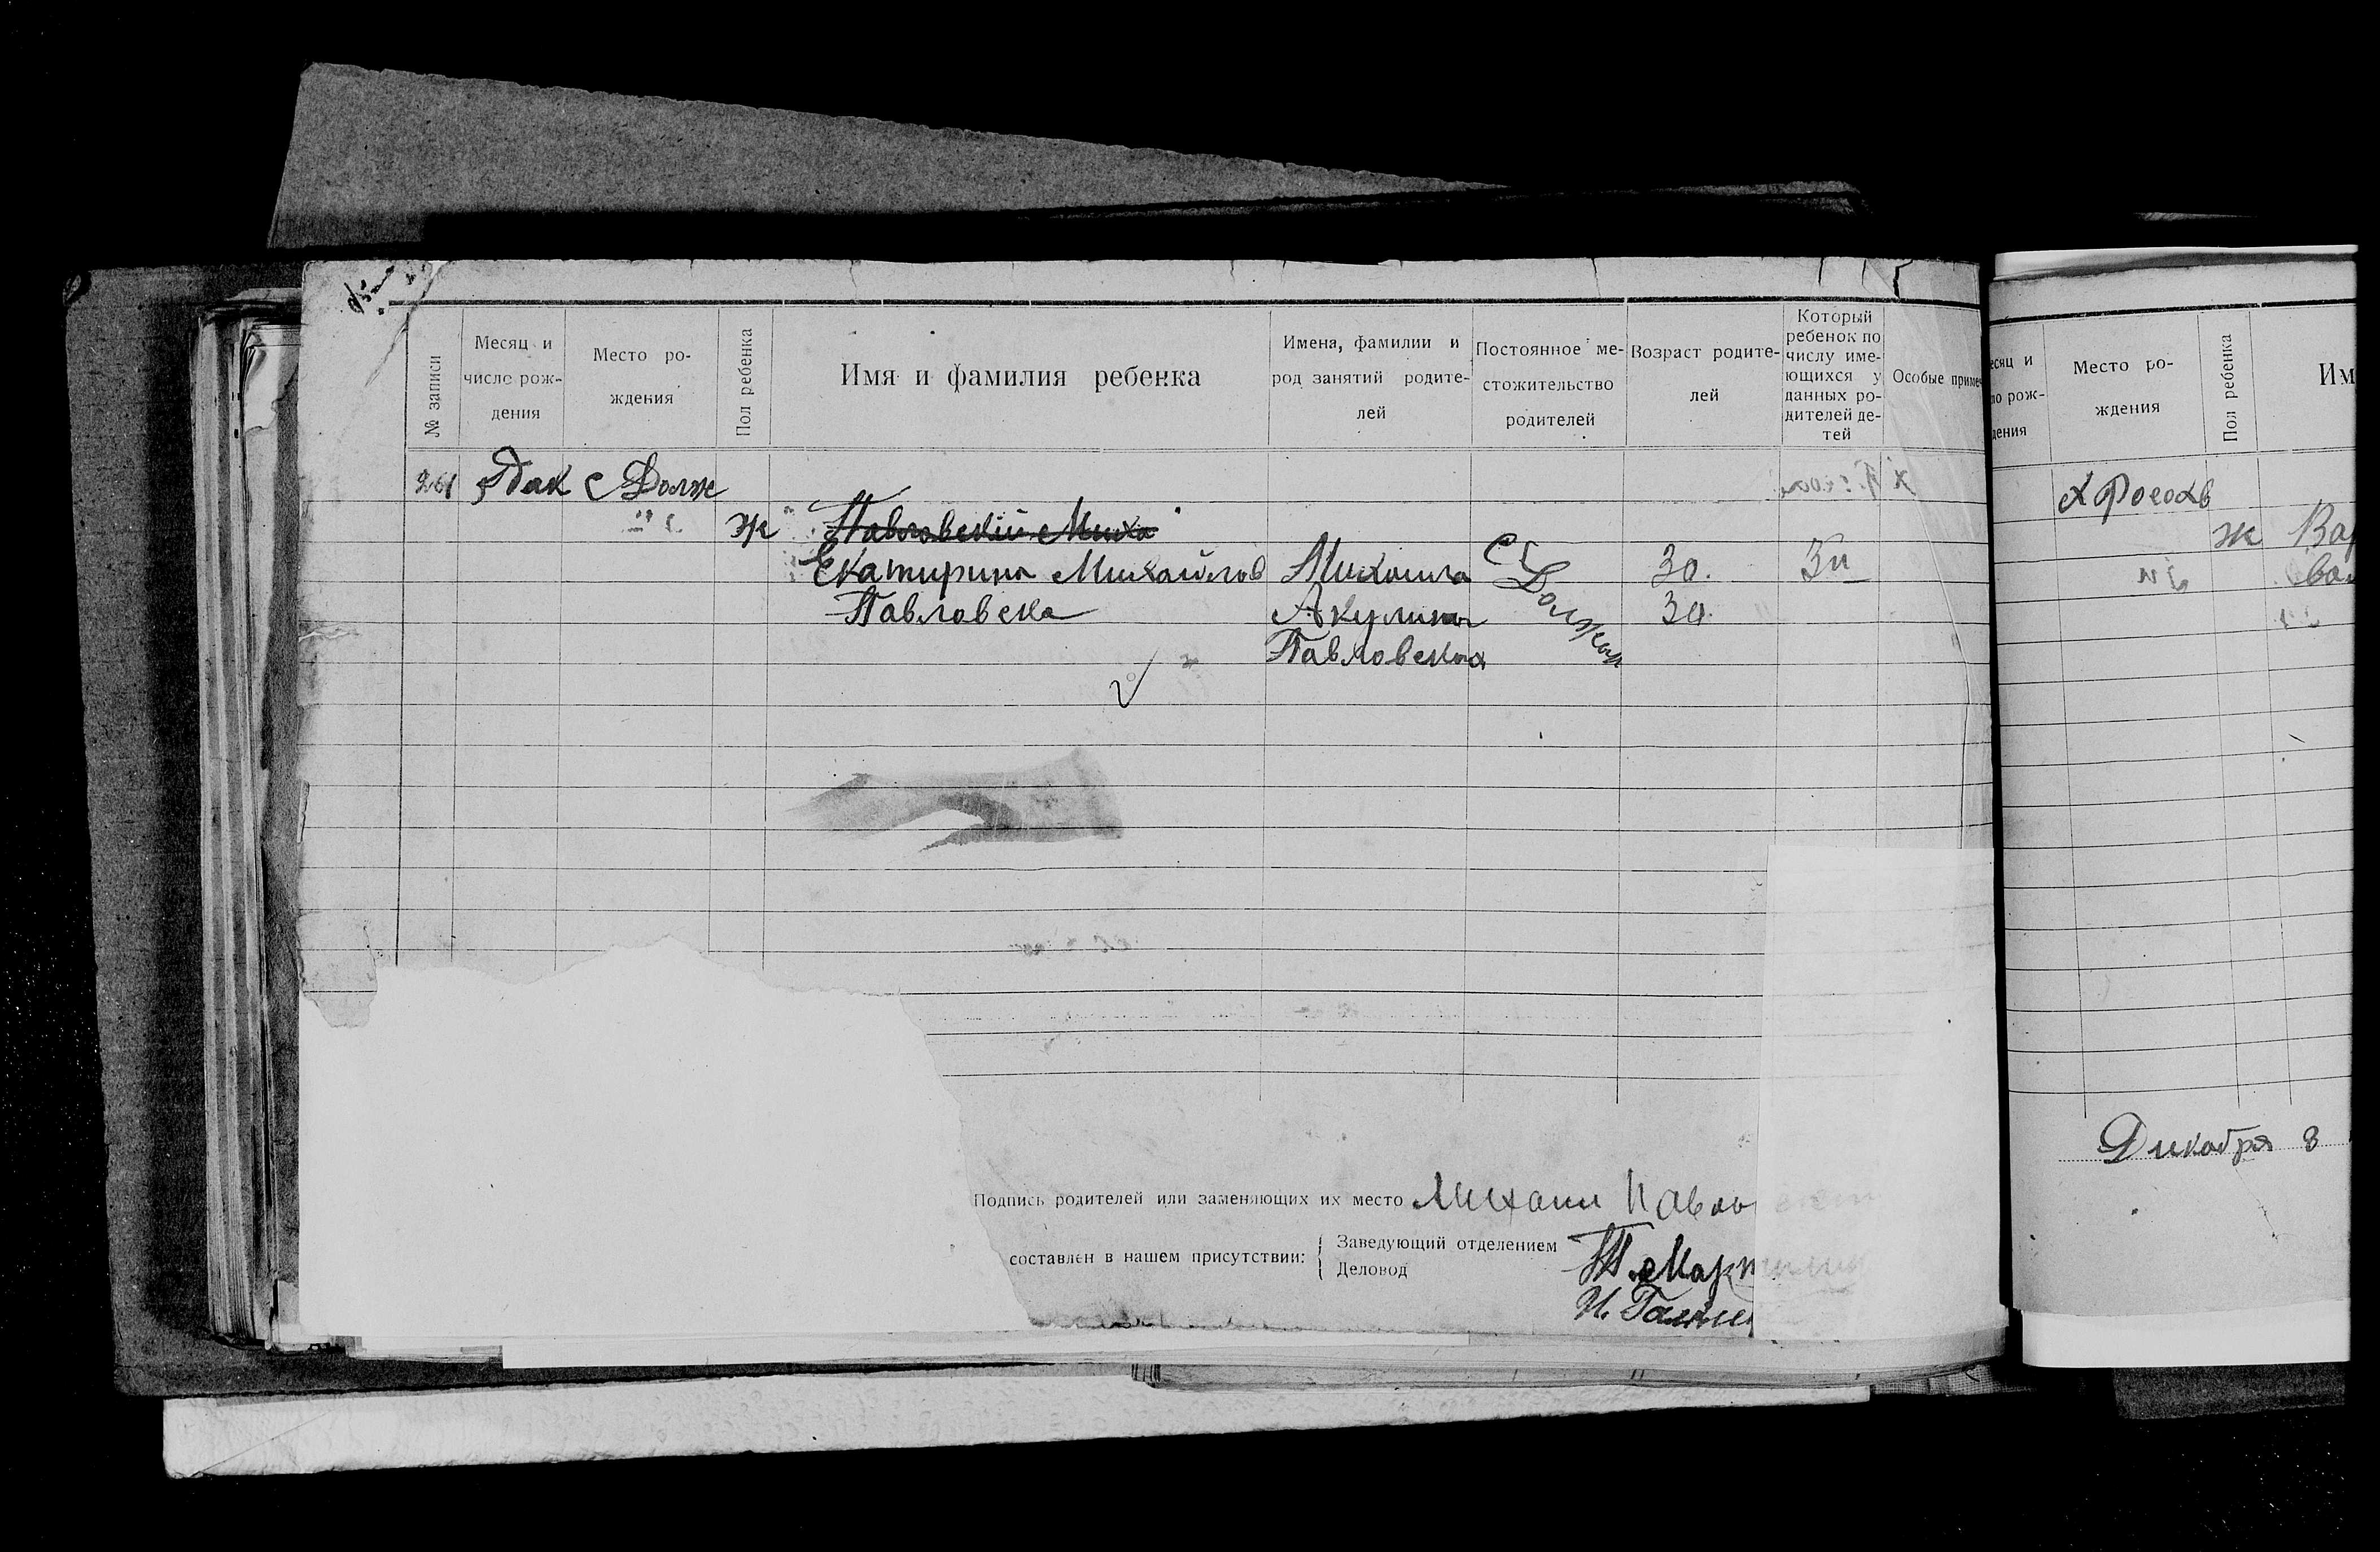 № записи
Месяц и число рождения
Место рождения
Пол ребенка
Имя и фамилия ребенка
Имена, фамилии и род занятий родителей
Постоянное местожительство родителей
Возраст родителей
Который ребенок по числу имеющихся у данных родителей детей
Особые примеч
261 дек с Долж
ж Павловский Миха
Екатирина Михайлов Михаила с Должик 30. 3й
Павловска Акулина 30.
Павловская
Подпись родителей или заменяющих их место Михаил Павлов
составлен в нашем присутствии:
Заведующий отделением
Деловод
есяц и
ло рож-
дения
Место рождения
Пол ребенка
Им
ж Вар
Дикабря 8